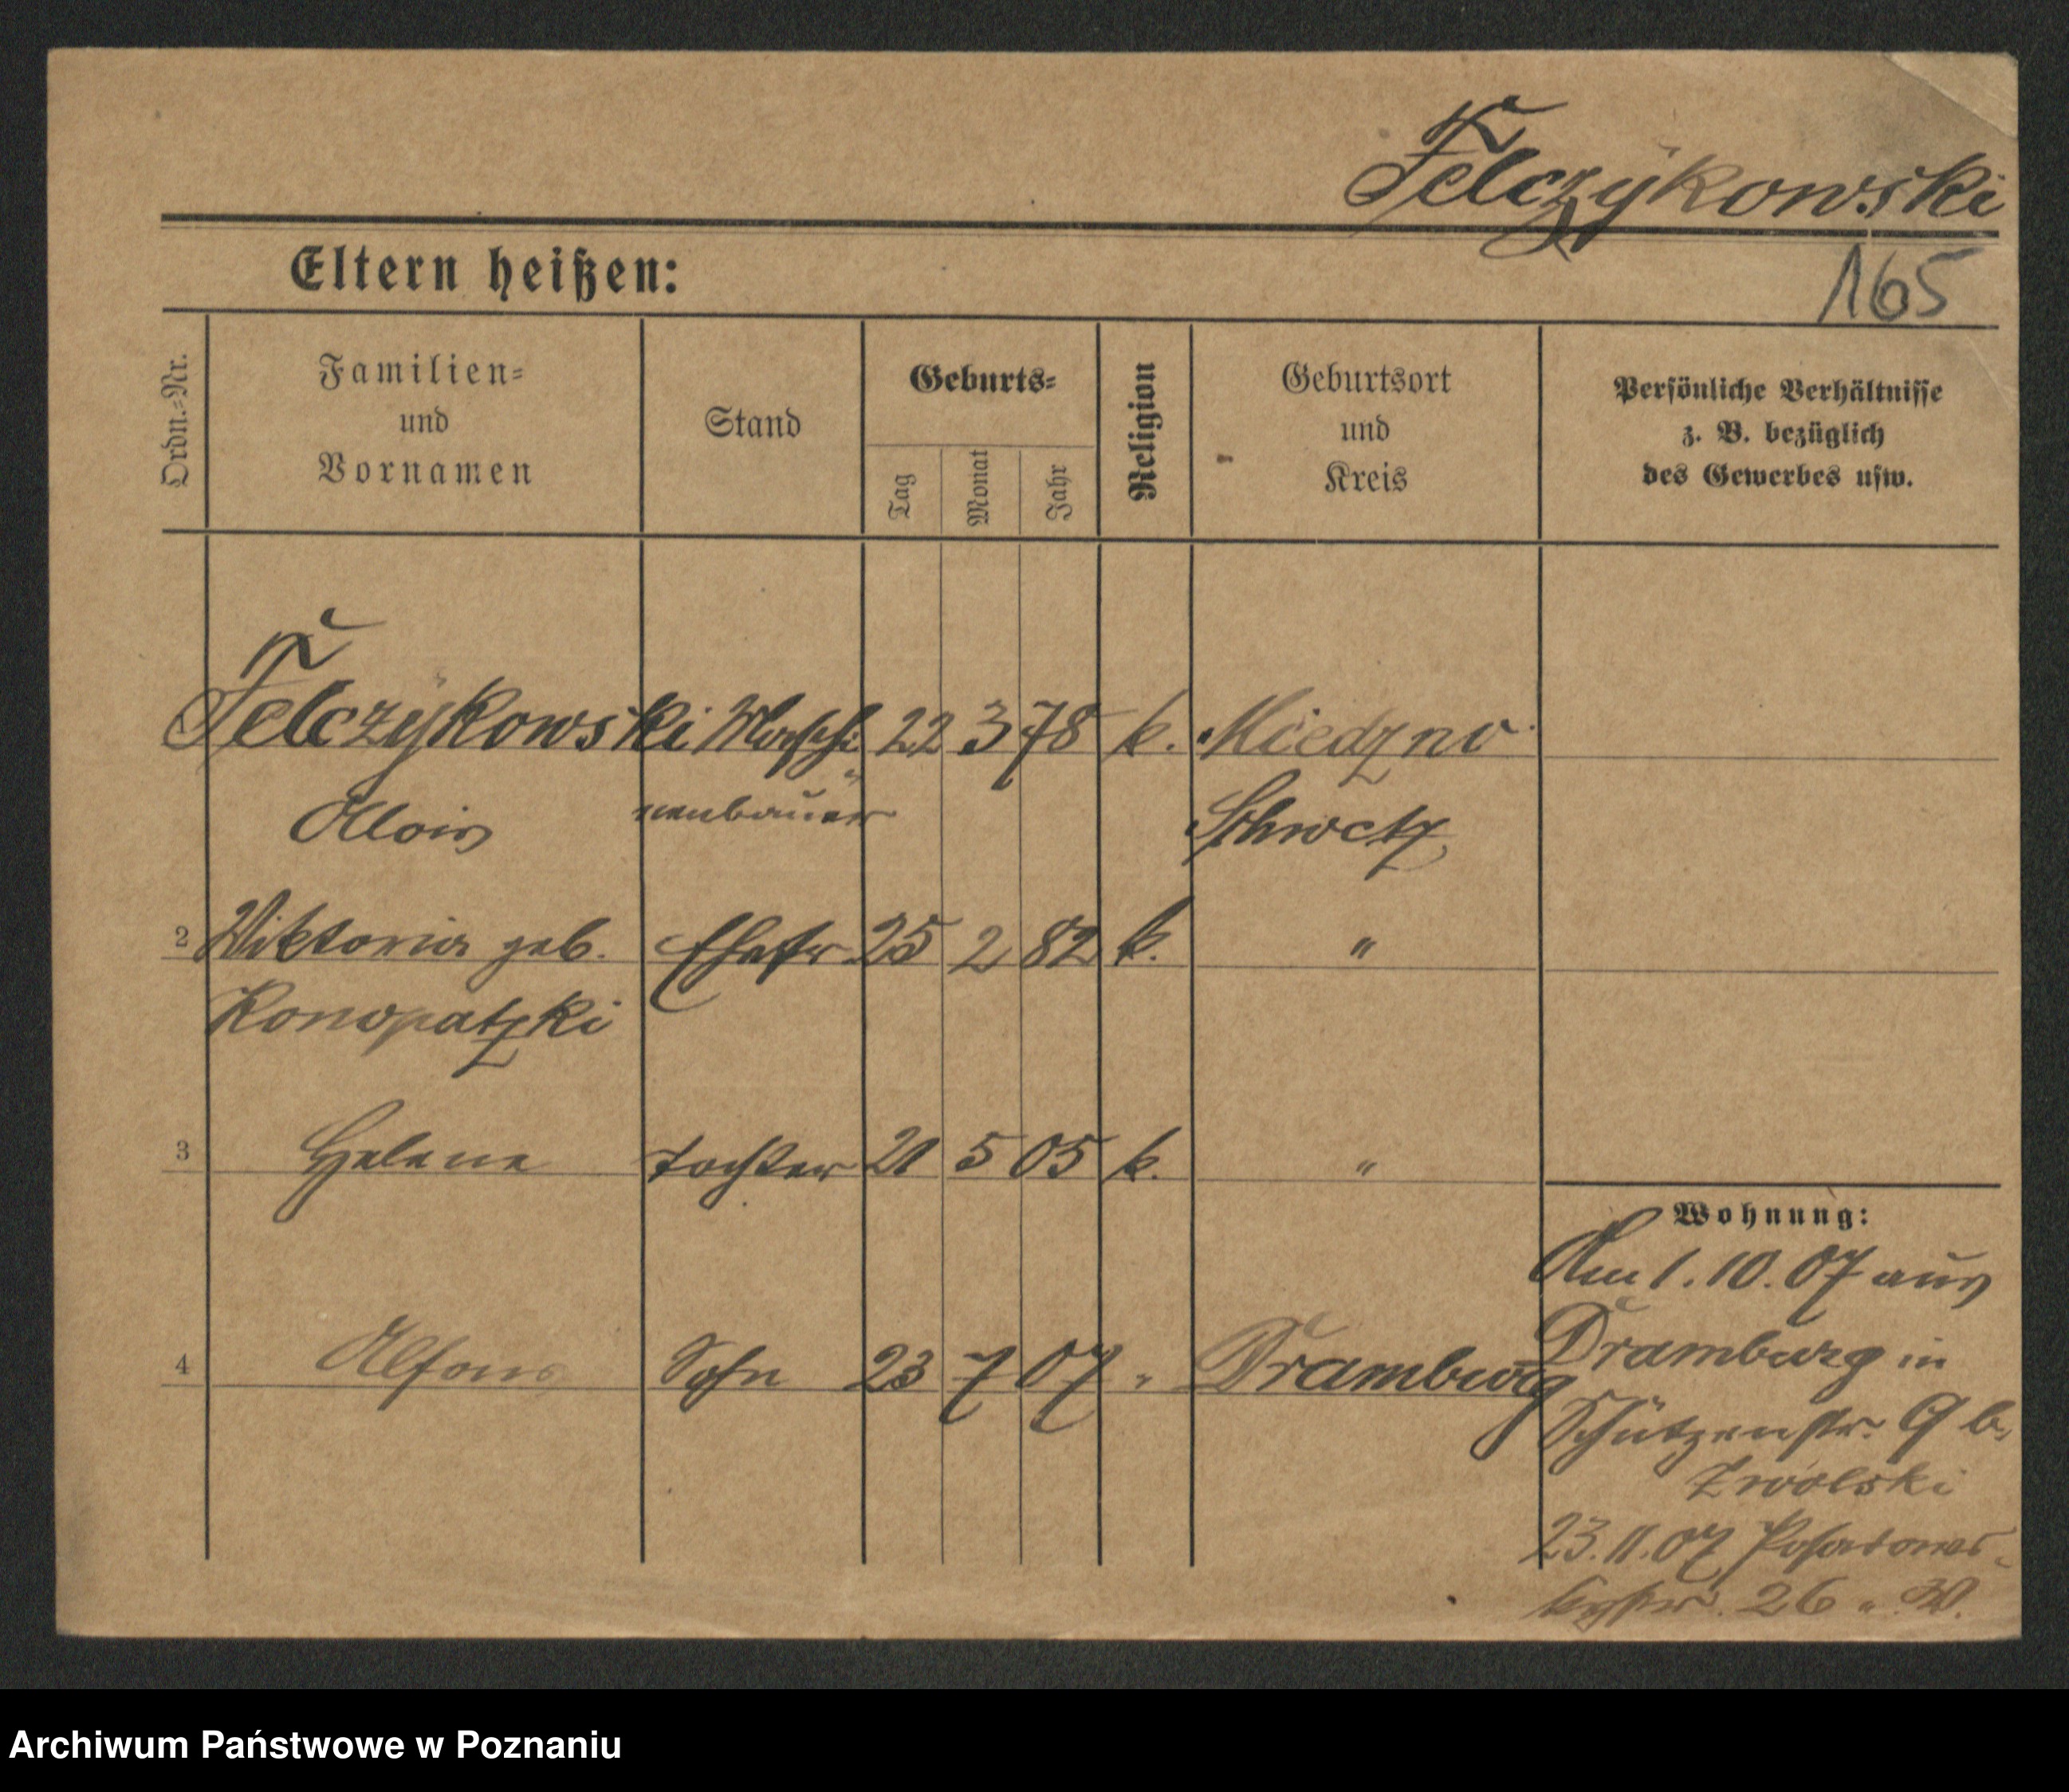 Felczykowski
165
Eltern heißen:
Ordn.=Nr.
Familien=
und
Vornamen
Stand
Geburts=
Tag
Monat
Jahr
Religion
Geburtsort
und
Kreis
Persönliche Verhältnisse
z. B. bezüglich
des Gewerbes usw.
Felczykowski Maschi 22 3 78 k. Miedzno
Alois nenbauer Schwetz
2 Viktoria geb. Ehefr 25 2 82 k. "
Konopatzki
3 Helene Tochter 21 5 05 k. "
Wohnung:
Am 1. 10. 07 aus
4 Alfons Sohn 23 7 07 " Dramburg
Dramburg in
Schützenstr. 9 b.
Zwolski
23. 11. 07
26 " W.
Archiwum Państwowe w Poznaniu